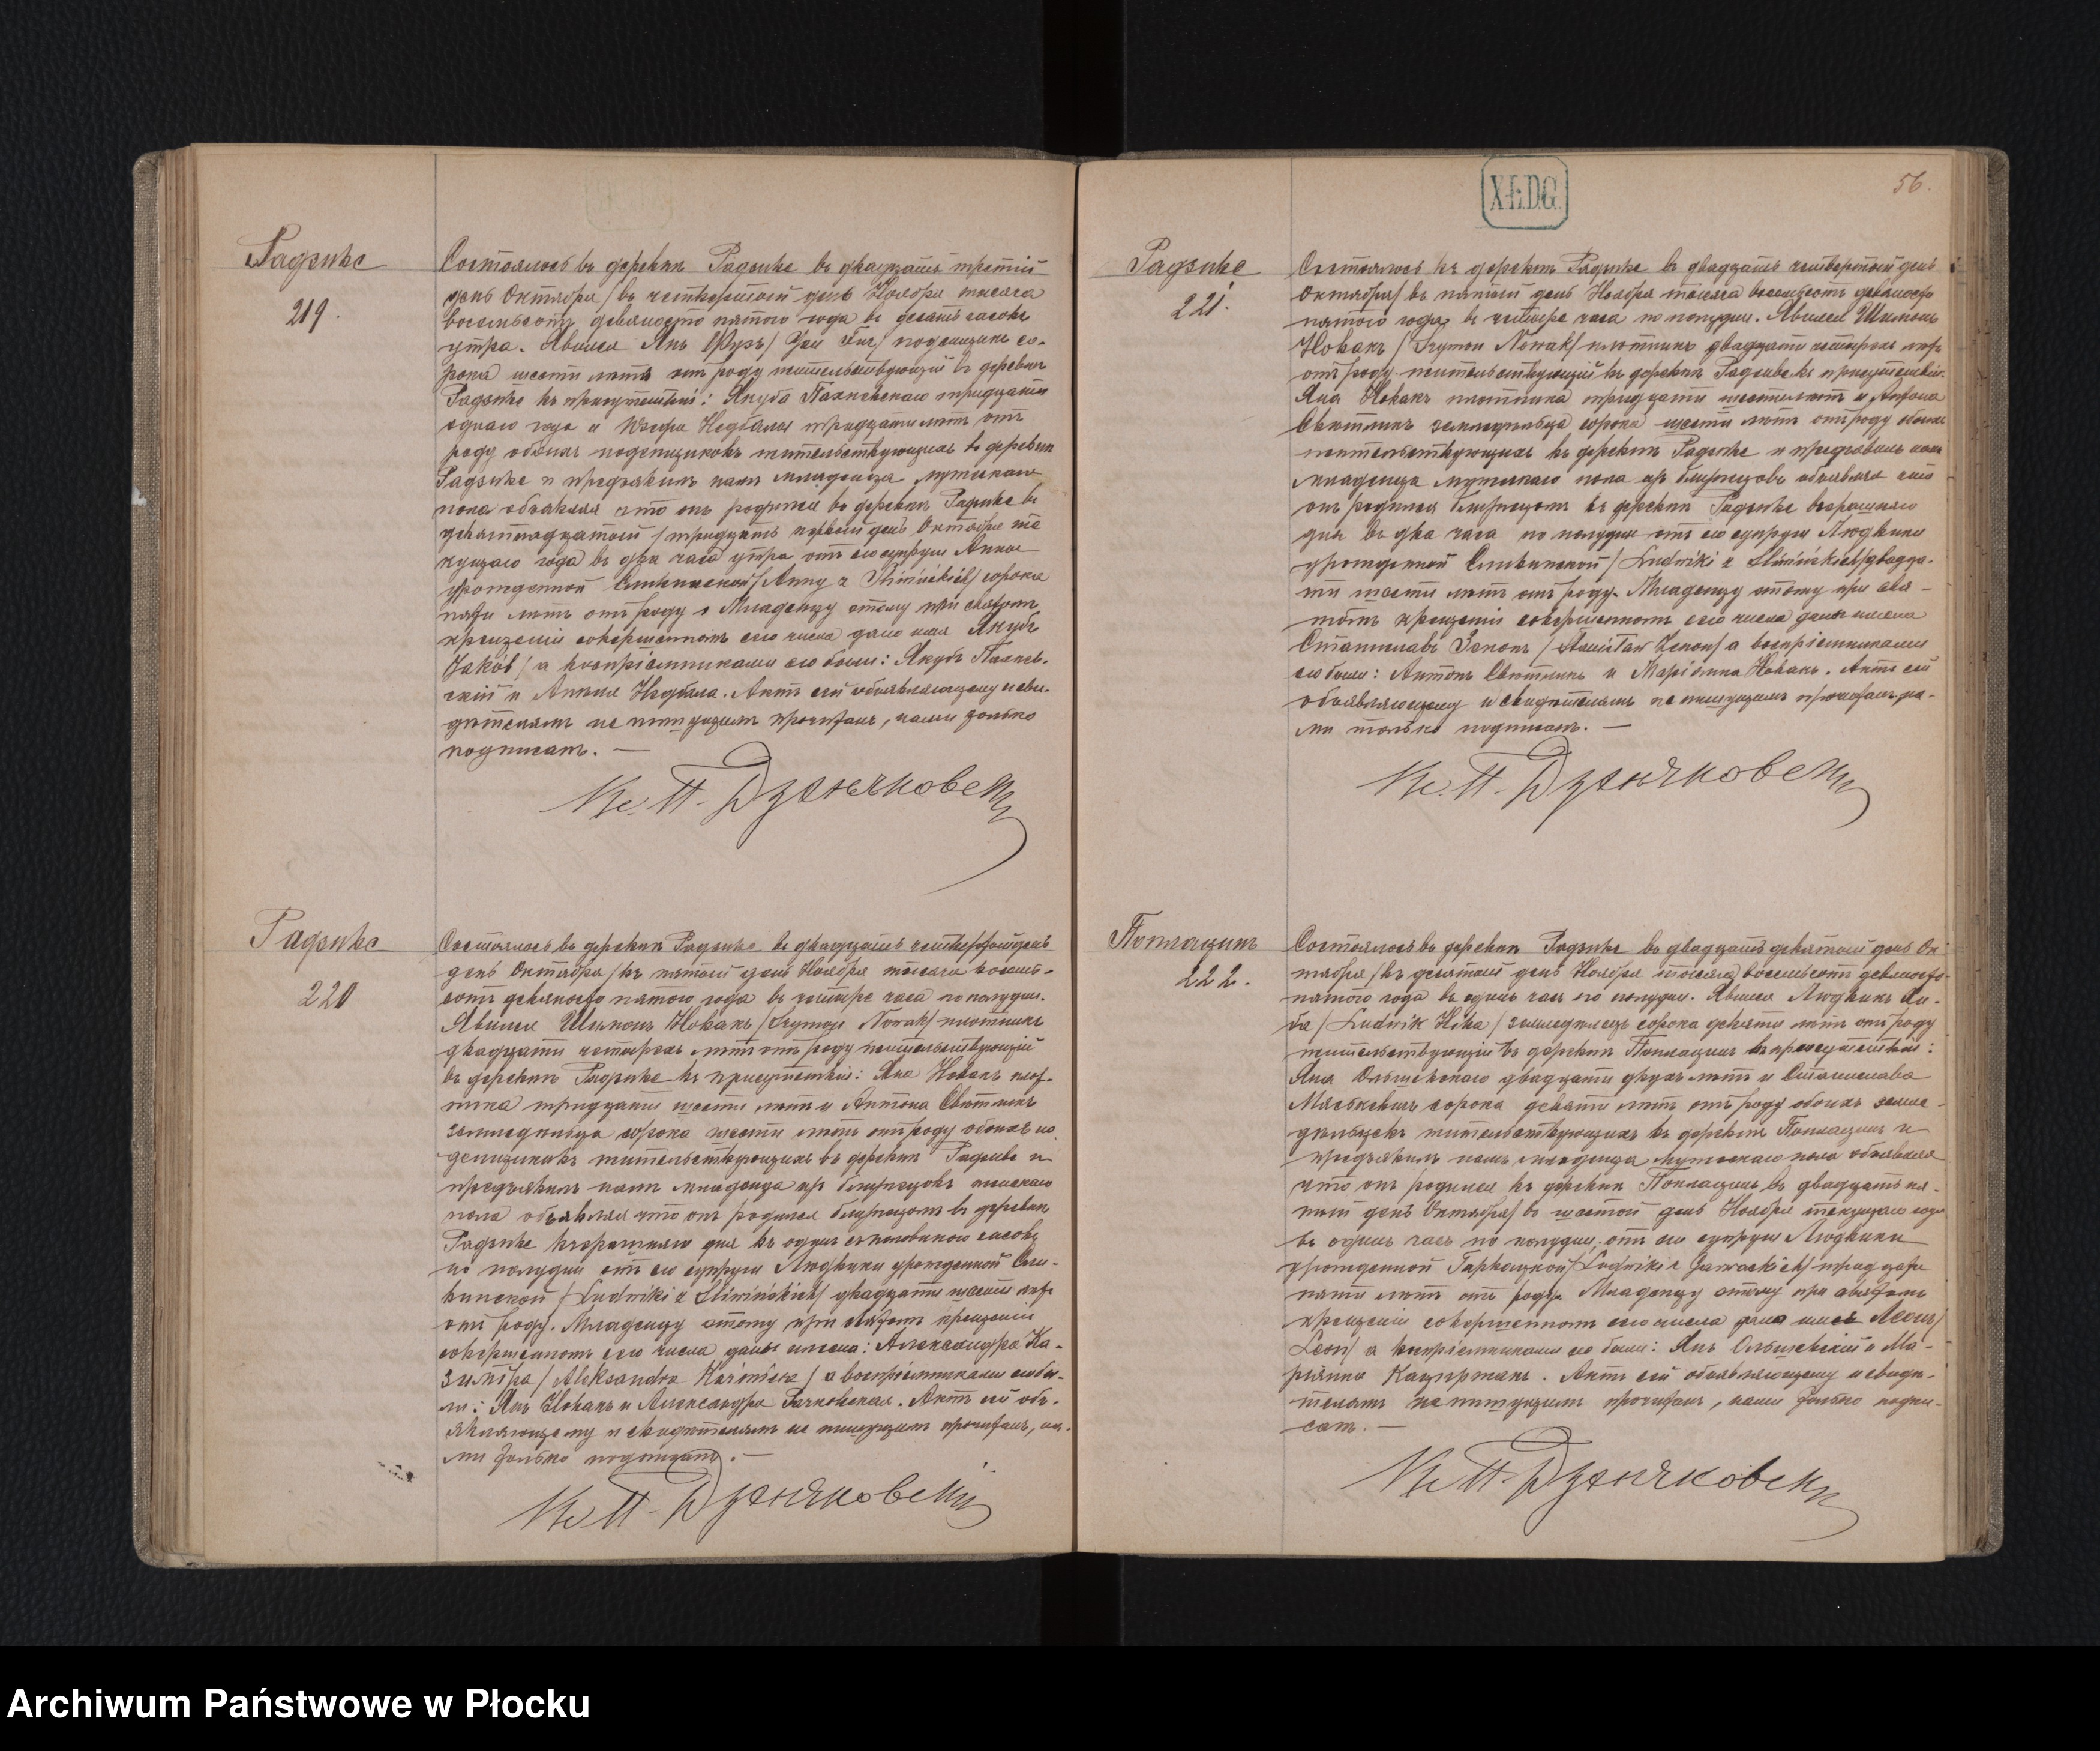 Радзике
219.
Состоялось въ деревни Радзике въ двадцать третій
день Октября / въ четвертый день Ноября тысяча
восемьсотъ девяносто пятого года въ десять часовъ
утра. Явился Янъ поденщикъ со-
рока шести лѣтъ отъ роду жительствующій въ деревни
Радзике въ присутствіи: Якуба тридцати
одного года и Юзефа Недбалы тридцати лѣтъ отъ
роду обоихъ поденщиковъ жительствующихъ въ деревни
Радзике и предъявилъ намъ младенца мужескаго
пола объявляя что онъ родился въ деревни Радзике въ
девятнадцатый / тридцать первый день Октября те
кущаго года въ два часа утра отъ его супруги Анны
урожденной / Anny z / сорока
пяти лѣтъ отъ роду. Младенцу этому при святомъ
крещеніи совершенномъ сего числа дано имя Якубъ
/ Jakób / а воспріемниками его были: Якубъ
и Недбала. Актъ сей объявляющему и сви-
дѣтелямъ не пишущимъ прочитанъ, нами только
подписанъ. —
Радзике
220
Состоялось въ деревни Радзике въ двадцать четвертый день
день Октября / въ пятый день Ноября тысяча восемь-
сотъ девяносто пятого года въ четыре часа по полудни.
Явился Шымонъ Новакъ / Szymon Nowak / плотникъ
двадцати четырехъ лѣтъ отъ роду жительствующій
въ деревни Радзике въ присутствіи: Яна Новакъ плот-
ника тридцати шести лѣтъ и Антона Свѣтликъ
земледѣльца сорока шести лѣтъ отъ роду обоихъ по
денщиковъ жительствующихъ въ деревни Радзике и
предъявилъ намъ младенца изъ близнецовъ женскаго
пола объявляя что онъ родился близнецомъ въ деревни
Радзике вчерашняго дня въ одинъ съ половиною часовъ
по полудни отъ его супруги Людвики урожденной Сли-
винской / Ludwiki z Śliwińskich / двадцати шести лѣтъ
отъ роду. Младенцу этому при святомъ крещеніи
совершенномъ сего числа даны имена: Александра Ка-
зимѣра / Aleksandra Kazimiera / а воспріемниками его бы-
ли: Янъ Новакъ и Александра. Актъ сей объ-
являющему и свидѣтелямъ не пишущимъ прочитанъ, на-
ми только подписанъ. —
X.Ł.D.G.
56.
Радзике
221.
Состоялось въ деревни Радзике въ двадцать четвертый день
Октября / въ пятый день Ноября тысяча восемьсотъ девяносто
пятого года въ четыре часа по полудни. Явился Шымонъ
Новакъ / Szymon Nowak / плотникъ двадцати четырехъ лѣтъ
отъ роду жительствующій въ деревни Радзике въ присутствіи
Яна Новакъ плотника тридцати шести лѣтъ и Антона
Свѣтликъ земледѣльца сорока шести лѣтъ отъ роду обоихъ
жительствующихъ въ деревни Радзике и предъявилъ намъ
младенца мужескаго пола изъ близнецовъ объявляя что
онъ родился близнецомъ въ деревни Радзике вчерашняго
дня въ два часа по полудни отъ его супруги Людвики
урожденной Сливинской / Ludwiki z Śliwińskich / двадца-
ти шести лѣтъ отъ роду. Младенцу этому при свя-
томъ крещеніи совершенномъ сего числа даны имена
Станиславъ Зенонъ / Stanisław Zenon / а воспріемниками
его были: Антонъ Свѣтликъ и Маріанна Новакъ. Актъ сей
объявляющему и свидѣтелямъ не пишущимъ прочитанъ, на-
ми только подписанъ. —
222.
Состоялось въ деревни Радзике въ двадцать девятый день Ок
тября / въ десятый день Ноября тысяча восемьсотъ девяносто
пятого года въ одинъ часъ по полудни. Явился Людвикъ
/ Ludwik / земледѣлецъ сорока девяти лѣтъ отъ роду
жительствующій въ деревни въ присутствіи:
Яна Ольшевскаго двадцати двухъ лѣтъ и Станислава
сорока девяти лѣтъ отъ роду обоихъ земле-
дѣльцевъ жительствующихъ въ деревни и
предъявилъ намъ младенца мужескаго пола объявляя
что онъ родился въ деревни въ двадцать пя-
тый день Октября / въ шестой день Ноября текущаго года
въ одинъ часъ по полудни, отъ его супруги Людвики
урожденной / Ludwiki z / тридцати
пяти лѣтъ отъ роду. Младенцу этому при святомъ
крещеніи совершенномъ сего числа дано имя Леонъ /
Leon / а воспріемниками его были: Янъ Ольшевскій и Ма-
ріянна. Актъ сей объявляющему и свидѣ-
телямъ не пишущимъ прочитанъ, нами только подпи-
санъ. —
Archiwum Państwowe w Płocku